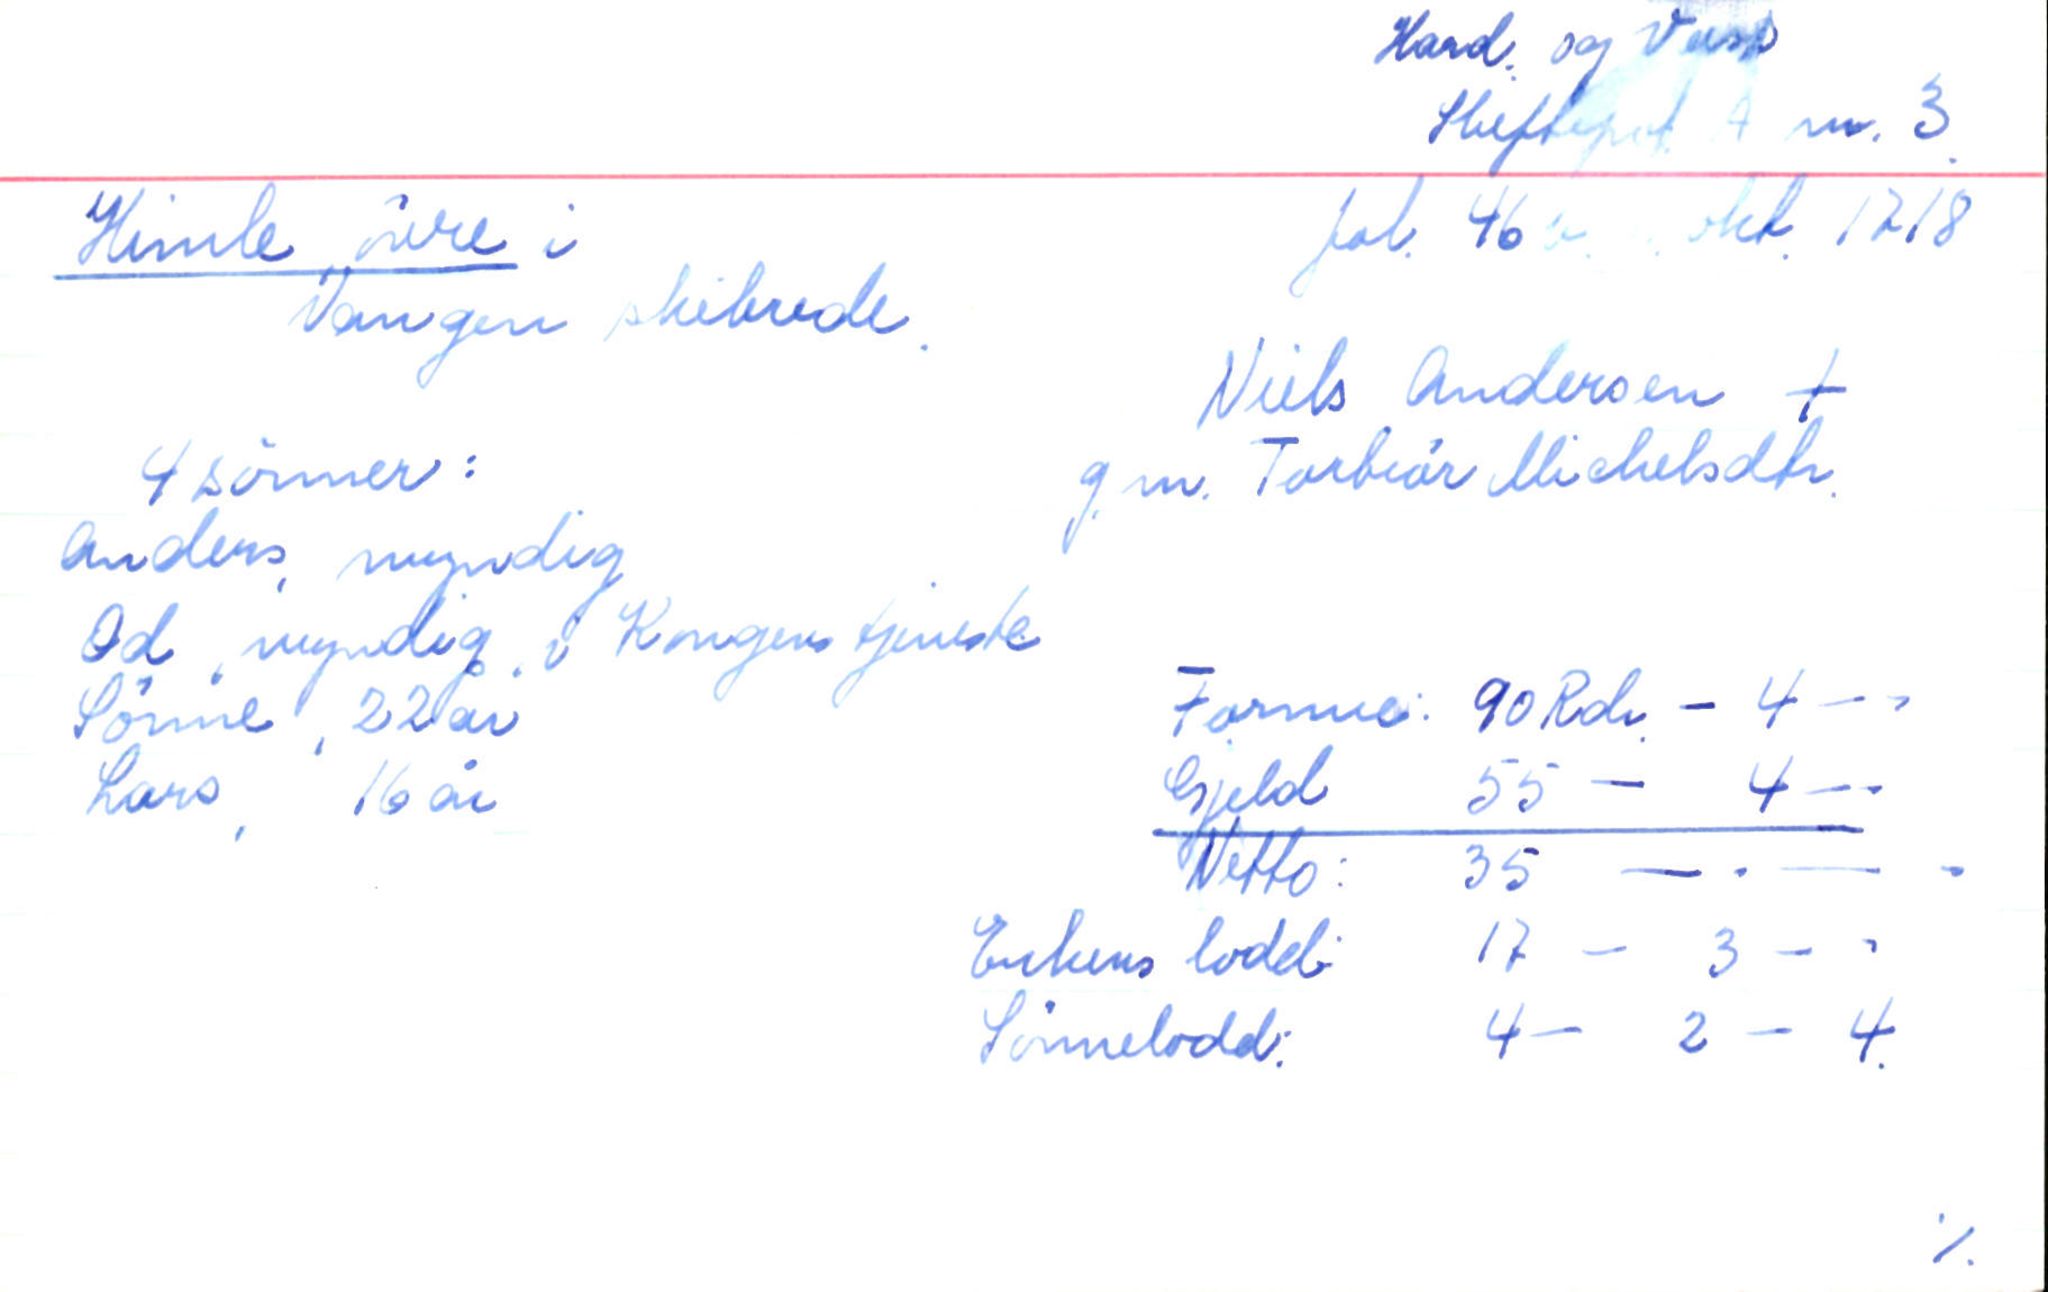 Hard. og Voss
Skifteprot. A nr. 3.
Himle, övre i
fol. 46 okt. 1718
Vangen skibrede.
Niels Andersen †
g.m. Torbiör Michelsdtr.
4 sönner:
Anders, myndig
Od, myndig, i Kongens tjeneste
Sönne, 22 år
Lars, 16 år
Formue: 90 Rdr. - 4 - -
Gjeld 55 - 4 - -
Netto: 35 - . - .
Enkens lodd: 17 - 3 - -
Sönnelodd: 4 - 2 - 4.
./.